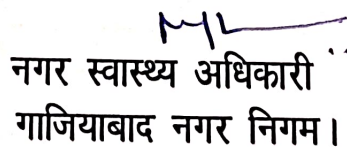 नगर स्वास्थ्य अधिकारी
गाजियाबाद नगर निगम।